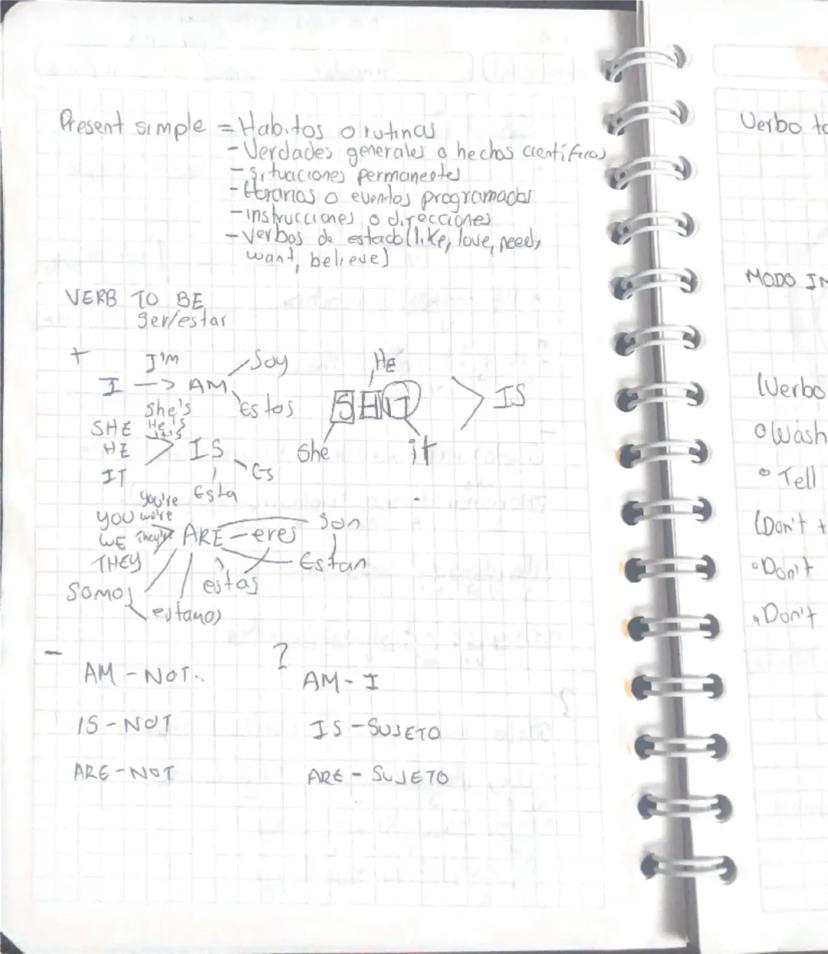 Present simple = Habitos o rutinas
- Verdades generales o hechos cientificos
- situaciones permanentes
- Horarios o eventos programados
- instrucciones o direcciones
- verbos de estado (like, love, need,
want, believe)
VERB TO BE
ser/estar
+
I'm
I -> AM
Soy
Estos
She's
He's
it's
SHE
HE
IT
IS
Es
Esta
HE
SHIT
She
it
IS
you're
we're
They're
YOU
WE
THEY
ARE - eres
Son
Estan
estas
Somos
estamos
-
AM - NOT..
IS - NOT
ARE - NOT
?
AM - I
IS - SUJETO
ARE - SUJETO
Verbo to
MODO IM
(Verbo
o Wash
• Tell
(Don't +
• Don't
• Don't